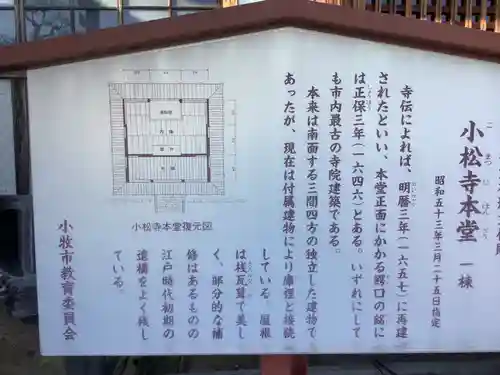 小松寺本堂 一棟
こまつじほんどう
昭和五十三年三月二十五日指定
寺伝によれば、明暦三年(一六五七)に再建
されたといい、本堂正面にかかる鰐口の銘に
は正保三年(一六四六)とある。いずれにして
も市内最古の寺院建築である。
本来は南面する三間四方の独立した建物で
あったが、現在は付属建物により庫裡と接続
している。屋根
は桟瓦葺で美し
く、部分的な補
修はあるものの
江戸時代初期の
遺構をよく残し
ている。
小松寺本堂復元図
小牧市教育委員会